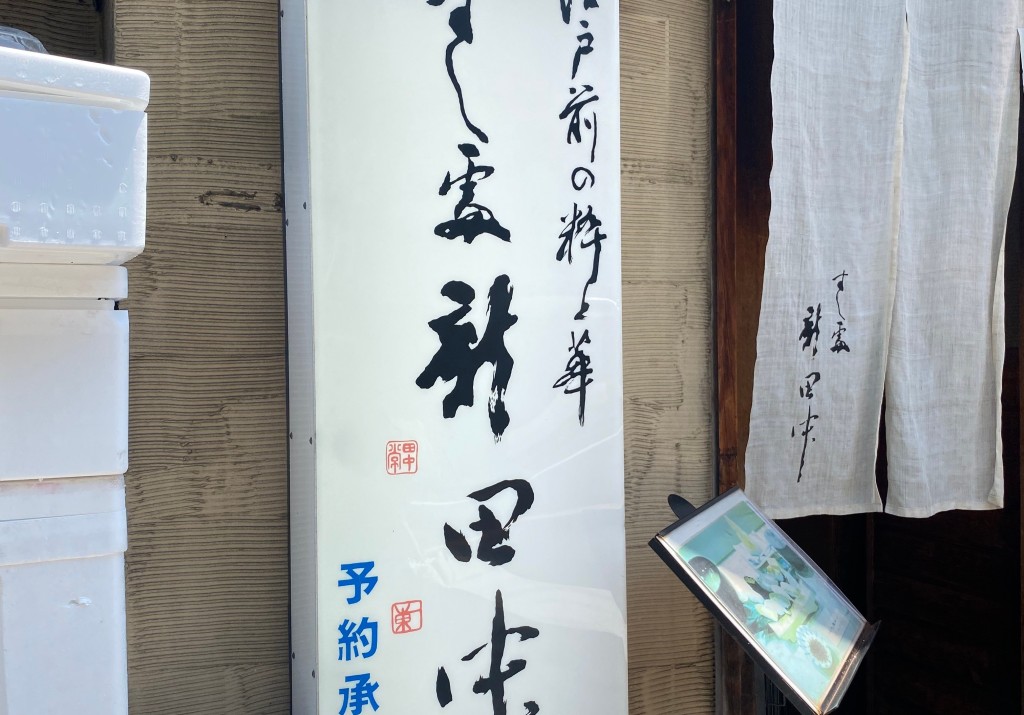 江戸前の粋と華
すし處 新田
予約承
すし處
新田
田中
東